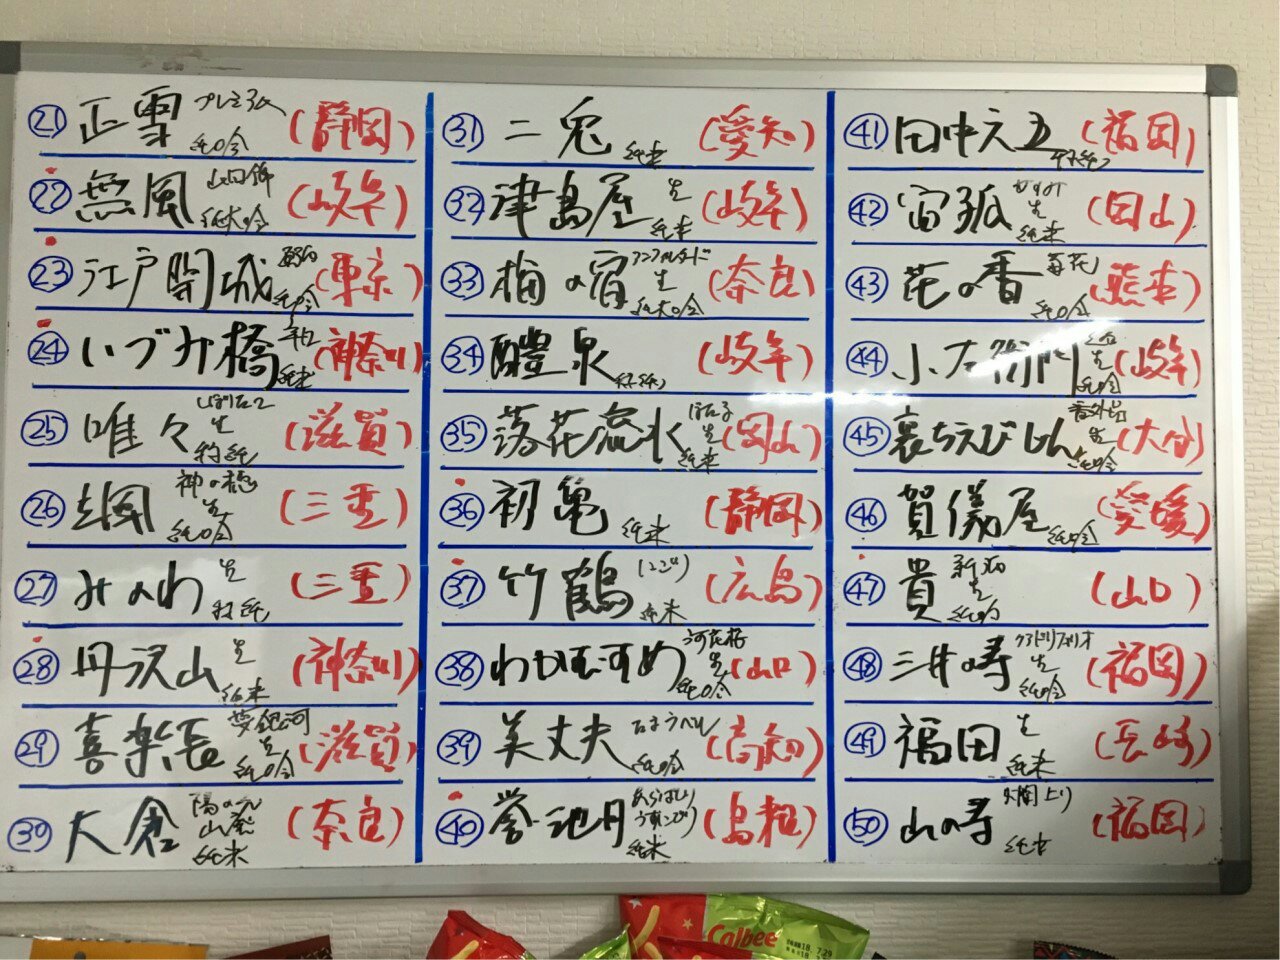 ㉑ 正雪 プレミアム 純吟 (静岡)
㉒ 無風 山田錦 純大吟 (岐阜)
㉓ 江戸開城 純吟 (東京)
㉔ いづみ橋 純米 (神奈川)
㉕ 唯々 しぼりたて 生 特純 (滋賀)
㉖ 神の穂 生 純吟 (三重)
㉗ みのわ 生 特純 (三重)
㉘ 丹沢山 生 純米 (神奈川)
㉙ 喜楽長 夢銀河 生 純吟 (滋賀)
㉚ 大倉 陽の光 山廃 純米 (奈良)
㉛ 二兎 純米 (愛知)
㉜ 津島屋 生 純米 (岐阜)
㉝ 梅の宿 アンフィルタード 生 純大吟 (奈良)
㉞ 醴泉 特純 (岐阜)
㉟ 落花流水 生 純米 (岡山)
㊱ 初亀 純米 (静岡)
㊲ 竹鶴 にごり 純米 (広島)
㊳ わかむすめ 生 純吟 (山口)
㊴ 美丈夫 純吟 (高知)
㊵ 誉池月 あらばしり うすにごり 純米 (島根)
㊶ 田中六五 特純 (福岡)
㊷ 宙狐 かすみ 生 純米 (岡山)
㊸ 花の香 菊花 純吟 (熊本)
㊹ 小左衛門 生 純吟 (岐阜)
㊺ 裏ちえびじん 番外品 生 純吟 (大分)
㊻ 賀儀屋 純吟 (愛媛)
㊼ 貴 新酒 生 純吟 (山口)
㊽ 三井の寿 クアドリフォリオ 生 純吟 (福岡)
㊾ 福田 生 純米 (長崎)
㊿ 山の寿 純米 (福岡)
Calbee
18. 7.29